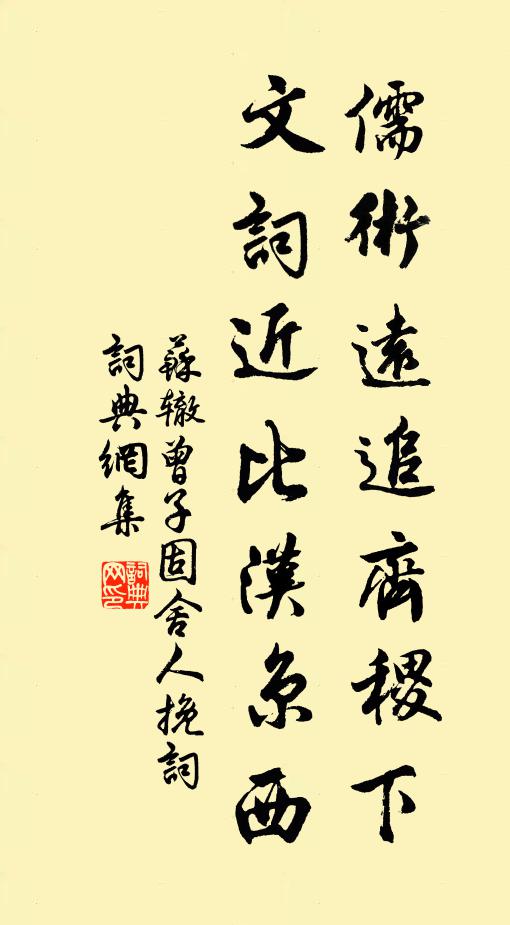 儒術遠追齊稷下
文詞近比漢京西
蘇辙曾子固舍人挽詞
詞典網集
詞典网印